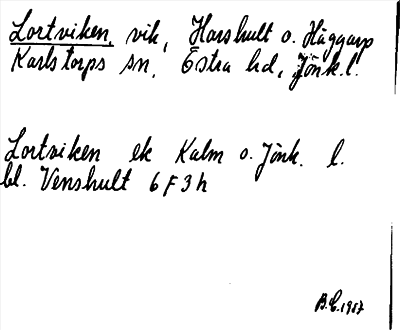 Lortviken, vik, Harshult o. Häggarp
Karlstorps sn, Östra hd, Jönk. l.
Lortviken ek Kalm o. Jönk. l.
bl. Venshult 6 F 3 h
B.E. 1967